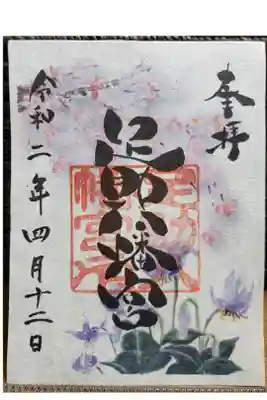 奉拝
足助八幡宮
令和二年四月十二日